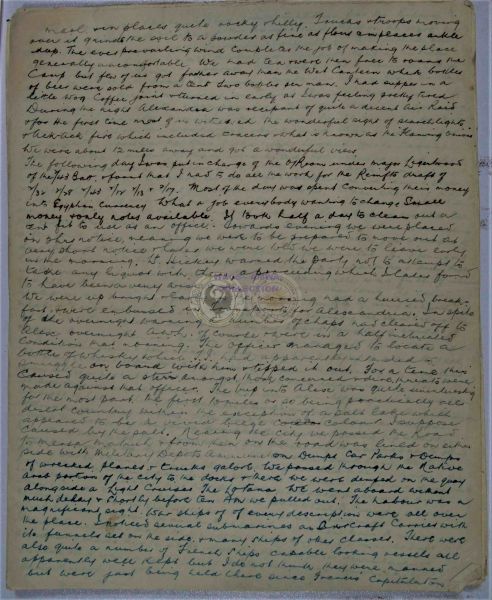 places quite rocky & hilly. Trucks & troops moving
over it grinds the soil to a powder as fine as flour in places ankle
deep. The ever prevailing wind couple as the job of making the place
generally uncomfortable. We had tea & were then free to roam the
Camp but few of us got farther away than the Wet Canteen where bottles
of beer were sold from a tent two bottles per man. I had supper in a
little Coffee joint & turned in early as I was feeling pretty tired
During the night Alexandria was recipient of quite a decent Air Raid
& for the first time most of us witnessed the wonderful sight of searchlights
& Ack Ack fire which included tracers & what is known as the Flaming onions
We were about 12 miles away and got a wonderful view.
The following day I was put in charge of the O/Room under Major
of the Batt. & found that I had to do all the work for the Reinfts draft of
Most of the day was spent converting their money
into Egyptian currency What a job everybody wanting to change small
money & only notes available. It took half a day to clean out a
tent fit to use as an office. Towards evening we were placed
on 2 hrs notice, meaning we were to be prepared to move out at
very short notice. Later we were told we were to leave early
in the morning. Lt Hickey warned the party not to attempt to
take any liquor with them a proceeding which I later found
to have been a very wise
We were up bright & early in the morning had a hurried break-
fast & were embussed for Alexandria. In spite
of the overnight warning a number of chaps had cleared off to
Alex overnight & were in a half inebriated
condition that morning. The officer managed to locate a
bottle of whiskey which had apparently intended to
smuggle on board with him & tipped it out. For a time this
caused quite a stir amongst those concerned & dire threats were
made against that officer. The trip into Alex was quite uninteresting
for the most part. the first 10 miles or so being practically all
desert country with the exception of a salt lake which
appeared to be a weird colour. I suppose
caused by the salt. Nearing the city we passed the road
to Mersa Matruh & from then on the road was lined on either
side with Military Depots Dumps Car Parks & Dumps
of wrecked planes & trucks galore. We passed through the Native
Arab portion of the city to the docks & here we were dumped on the quay
alongside a Light Cruiser. We went aboard without
much delay & shortly before ten Am we pulled out. The harbour was a
magnificent sight. War ships of every description were all over
the place. I noticed several submarines an Aircraft Carrier with
its funnels set on the side, & many ships of other classes. There were
also quite a number of French Ships capable looking vessels all
apparently well kept but I do not think they were manned
but were just being held there since France's Capitulation